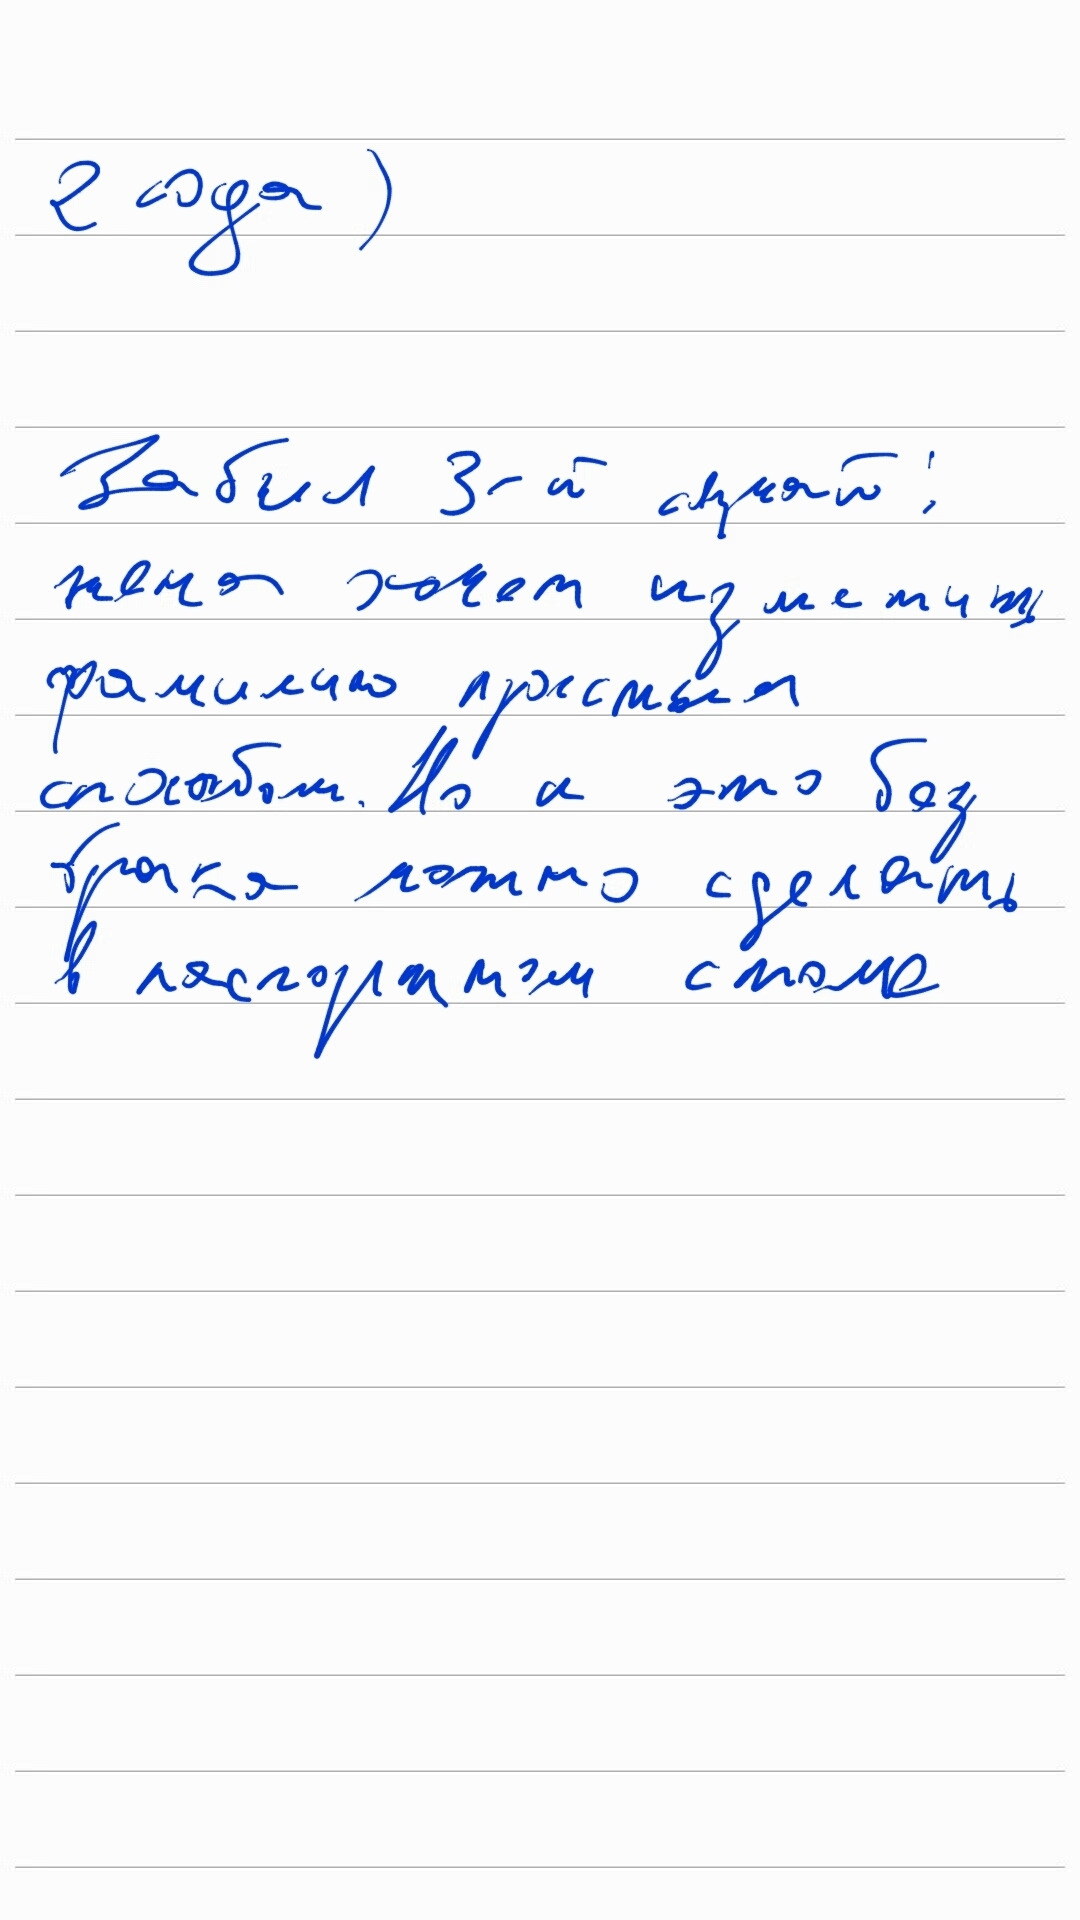 2 года)
Забыл 3-й случай:
жена хочет изменить
фамилию простым
способом. Но и это без
брака можно сделать
в паспортном столе